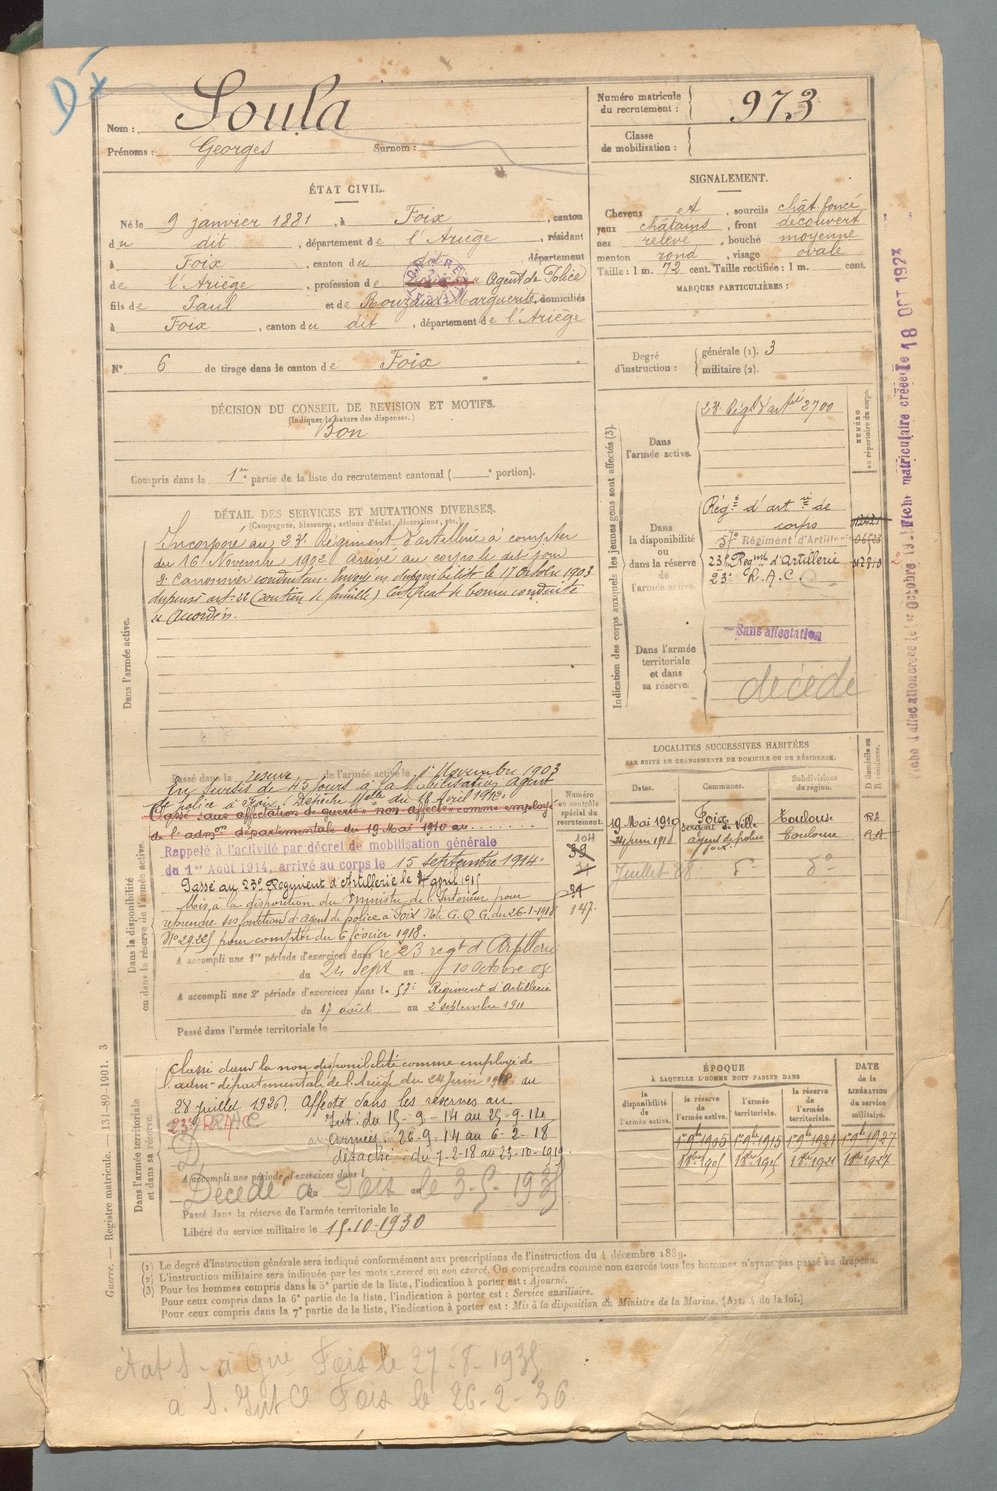 Nom : Soula
Prénoms : Georges Surnom :
Numéro matricule du recrutement : 973
Classe de mobilisation :
ÉTAT CIVIL.
Né le 9 janvier 1881, à Foix, canton
du dit, département de l'Ariège, résidant
à Foix, canton du dit, département
de l'Ariège, profession de Agent de Police
fils de Paul et de Marguerite, domiciliés
à Foix, canton du dit, département de l'Ariège
N° 6 de tirage dans le canton de Foix
DÉCISION DU CONSEIL DE REVISION ET MOTIFS.
(Indiquer la nature des dispenses.)
Bon
Compris dans la 1re partie de la liste du recrutement cantonal ( e portion).
SIGNALEMENT.
Cheveux et, sourcils chât. foncé
yeux châtains, front découvert
nez relevé, bouche moyenne
menton rond, visage ovale
Taille : 1 m. 72 cent. Taille rectifiée : 1 m. cent.
MARQUES PARTICULIÈRES :
Degré d'instruction : générale (1). 3
militaire (2).
DÉTAIL DES SERVICES ET MUTATIONS DIVERSES.
(Campagnes, blessures, actions d'éclat, décorations, etc.)
Dans l'armée active.
Incorporé au 23e Régiment d'artillerie à compter
du 16 Novembre 1902 arrivé au corps le dit jour
2e Canonnier conducteur. Envoyé en disponibilité le 17 Octobre 1903
dispensé art. 22 (soutien de famille) Certificat de bonne conduite
Accordé.
Passé dans la réserve de l'armée active le 1er Novembre 1903
sursis de 45 jours à la Mobilisation agent
de police à Foix. Dépêche Melle du 18 Avril 1912.
Classé sans affectation de guerre non affecté comme employé
de l'admon départementale du 19 Mai 1910 au
Rappelé à l'activité par décret de mobilisation générale
du 1er Août 1914, arrivé au corps le 15 septembre 1914.
Passé au 23e Régiment d'Artillerie le 4 avril 1915
Mis à la disposition du Ministre de l'Intérieur pour
reprendre ses fonctions d'agent de police à Foix Note G.Q.G. du 26-1-1918
pour compter du 6 février 1918.
A accompli une 1re période d'exercices dans le 23 regt d'Artillerie
du 24 Sept au 10 Octobre 08
A accompli une 2e période d'exercices dans le 57e Régiment d'Artillerie
du 17 août au 2 septembre 1911
Passé dans l'armée territoriale le
Dans la disponibilité ou dans la réserve de l'armée active.
Numéro au contrôle spécial du recrutement.
147
Indication des corps auxquels les jeunes gens sont affectés (3).
NUMÉRO au répertoire du corps.
Dans l'armée active.
23e Régt d'artrie 2700
Dans la disponibilité ou dans la réserve de l'armée active.
Régt d'artrie de
corps
57e Régiment d'Artillerie
23e Regmt d'Artillerie
23e R.A.C.
Dans l'armée territoriale et dans sa réserve.
Sans affectation
décédé
LOCALITÉS SUCCESSIVES HABITÉES
PAR SUITE DE CHANGEMENTS DE DOMICILE OU DE RÉSIDENCE.
Dates. Communes. Subdivisions de région. D domicile ou R résidence.
19 Mai 1910 Foix sergent de Ville Toulouse
24 juin 1918 agent de police Foix Toulouse
Dans l'armée territoriale et dans sa réserve.
Classé dans la non disponibilité comme employé de
l'adm- départementale de l'Ariège du 24 Juin 1918 au
28 juillet 1926. Affecté dans les réserves au
23e RAC
Int. : du 15-9-14 au 25-9-14
Armées : 26-9-14 au 6-2-18
détaché : du 7-2-18 au 23-10-1919
A accompli une période d'exercices dans l
Décédé à Foix le 3-5-1935
Passé dans la réserve de l'armée territoriale le
Libéré du service militaire le 15-10-1930
ÉPOQUE
À LAQUELLE L'HOMME DOIT PASSER DANS
la disponibilité de l'armée active. la réserve de l'armée active. l'armée territoriale. la réserve de l'armée territoriale.
DATE de la LIBÉRATION du service militaire.
1er 9bre 1905 1er 9bre 1915 1er 9bre 1921 1er 9bre 1927
Guerre. — Registre matricule. — 131-89-1901. 3
(1) Le degré d'instruction générale sera indiqué conformément aux prescriptions de l'instruction du 4 décembre 1889.
(2) L'instruction militaire sera indiquée par les mots : exercé ou non exercé. On comprendra comme non exercés tous les hommes n'ayant pas passé au drapeau.
(3) Pour les hommes compris dans la 5e partie de la liste, l'indication à porter est : Ajourné.
Pour ceux compris dans la 6e partie de la liste, l'indication à porter est : Service auxiliaire.
Pour ceux compris dans la 7e partie de la liste, l'indication à porter est : Mis à la disposition du Ministre de la Marine. (Art. 4 de la loi.)
Foix le 27-8-1935
Foix le 26-2-36
Fiche matriculaire créée le 18 OCT 1923